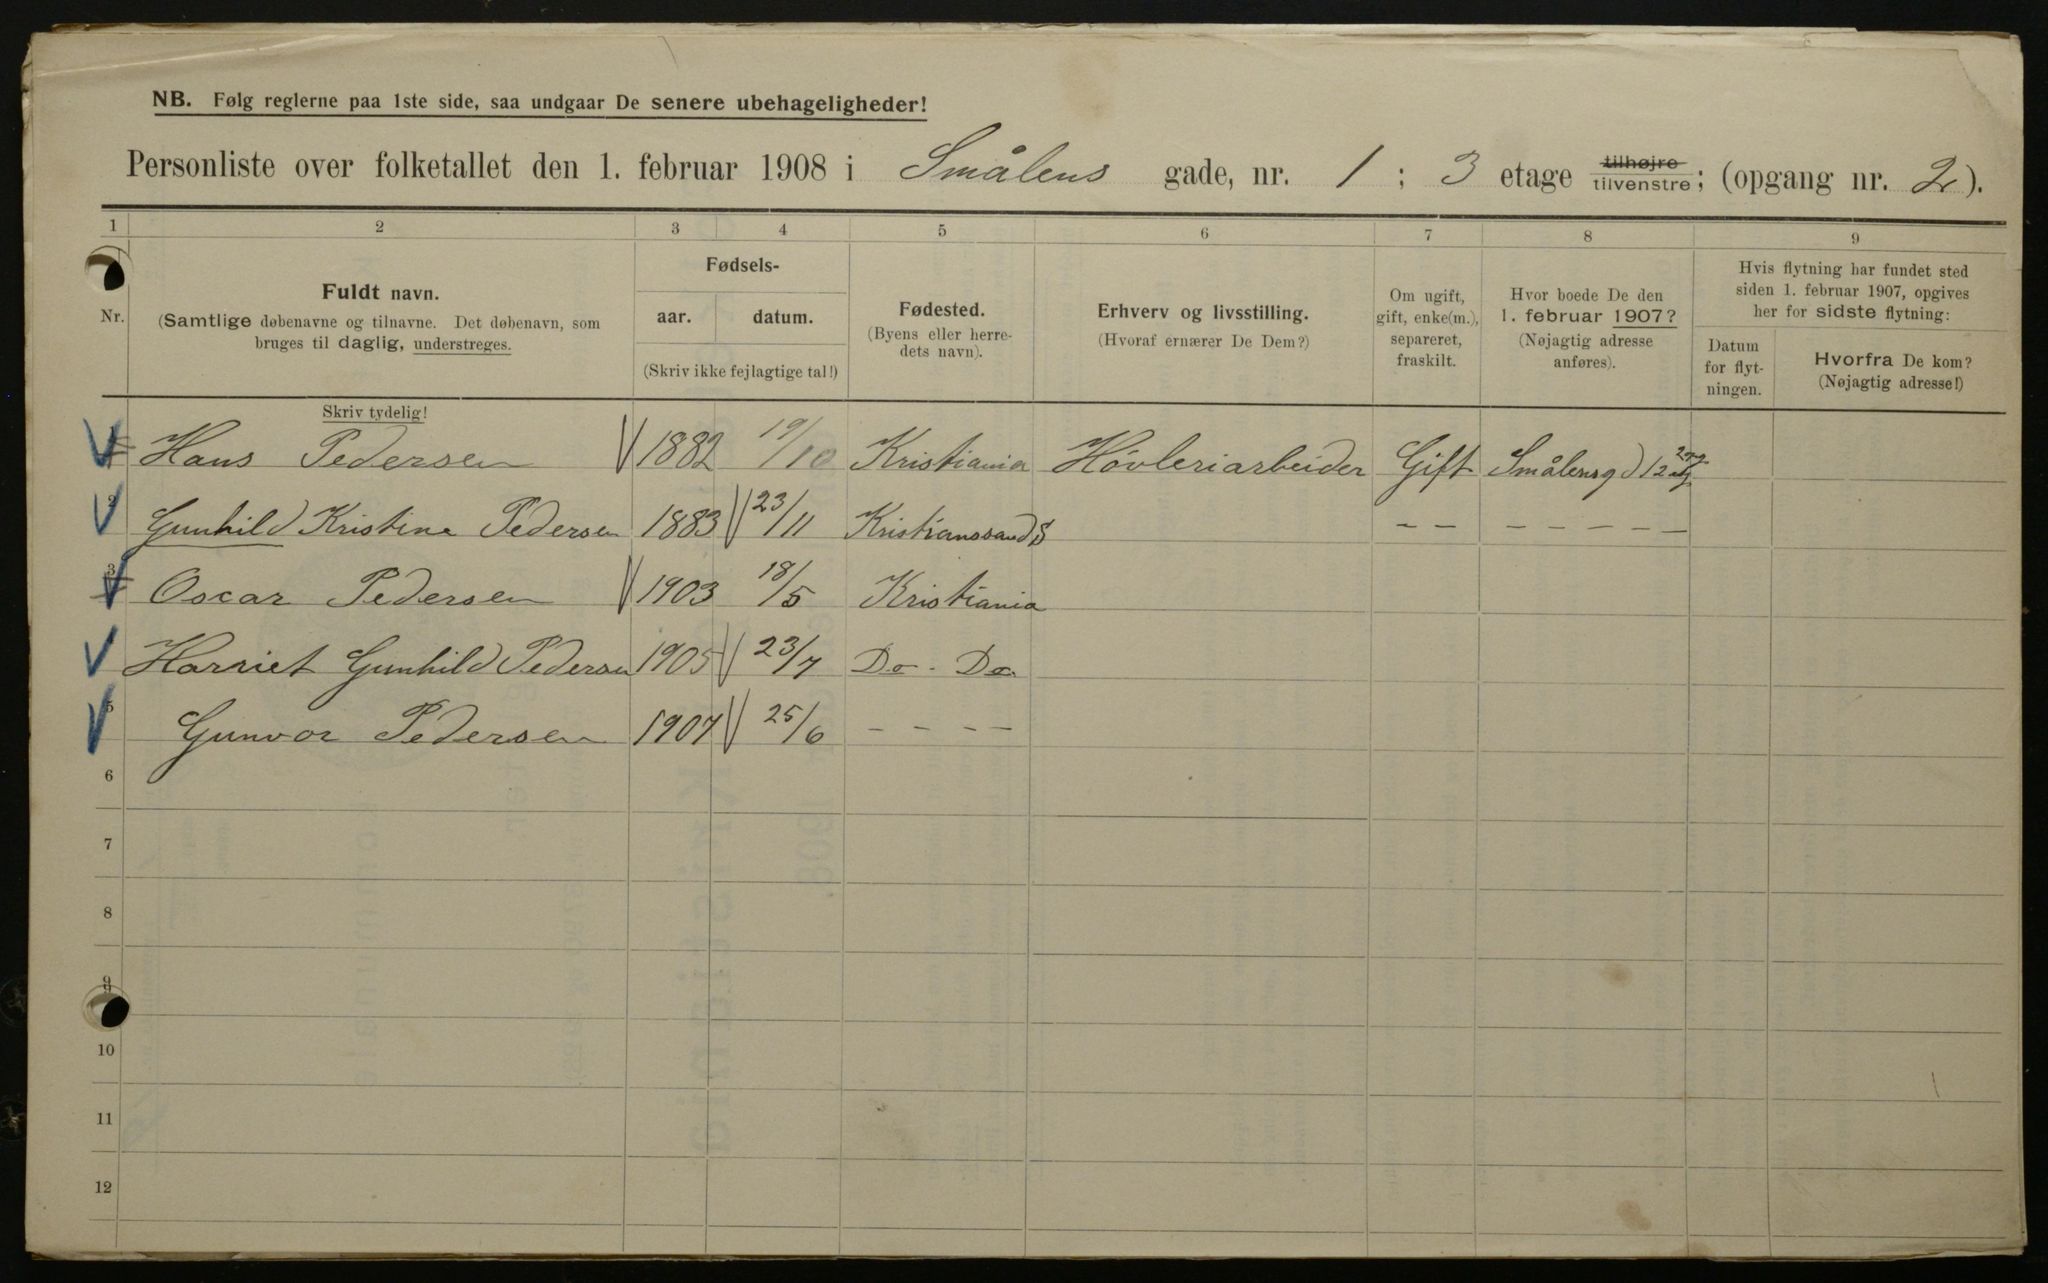 NB. Følg reglerne paa 1ste side, saa undgaar De senere ubehageligheder!
Personliste over folketallet den 1. februar 1908 i Smålens gade, nr. 1 ; 3 etage tilhøjre tilvenstre; (opgang nr. 2).
1 2 3 4 5 6 7 8 9
Nr.
Fuldt navn.
(Samtlige døbenavne og tilnavne. Det døbenavn, som
bruges til daglig, understreges.
Skriv tydelig!
Fødsels-
aar. datum.
(Skriv ikke fejlagtige tal!)
Fødested.
(Byens eller herre-
dets navn).
Erhverv og livsstilling.
(Hvoraf ernærer De Dem?)
Om ugift,
gift, enke(m.),
separeret,
fraskilt.
Hvor boede De den
1. februar 1907?
(Nøjagtig adresse
anføres).
Hvis flytning har fundet sted
siden 1. februar 1907, opgives
her for sidste flytning:
Datum
for flyt-
ningen.
Hvorfra De kom?
(Nøjagtig adresse!)
1 Hans Pedersen 1882 19/10 Kristiania Høvleriarbeider Gift Smålensgd 1
2 Gunhild Kristine Pedersen 1883 23/11 Kristianssand S – – – – – – –
3 Oscar Pedersen 1903 18/5 Kristiania
Harriet Gunhild Pedersen 1905 23/7 Do - Do
5 Gunvor Pedersen 1907 25/6 – – – –
6
7
8
9
10
11
12